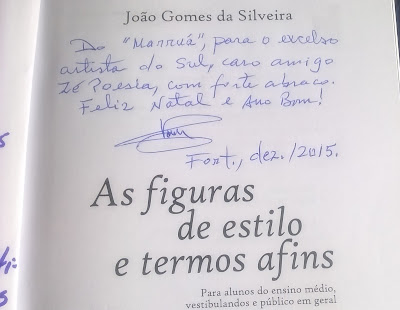 João Gomes da Silveira
Do "Marruá", para o excelso
artista do Sul, caro amigo
Zé Poesia, com forte abraço.
Feliz Natal e Ano Bom!
Fort., dez./2015.
As figuras
de estilo
e termos afins
Para alunos do ensino médio,
vestibulandos e público em geral